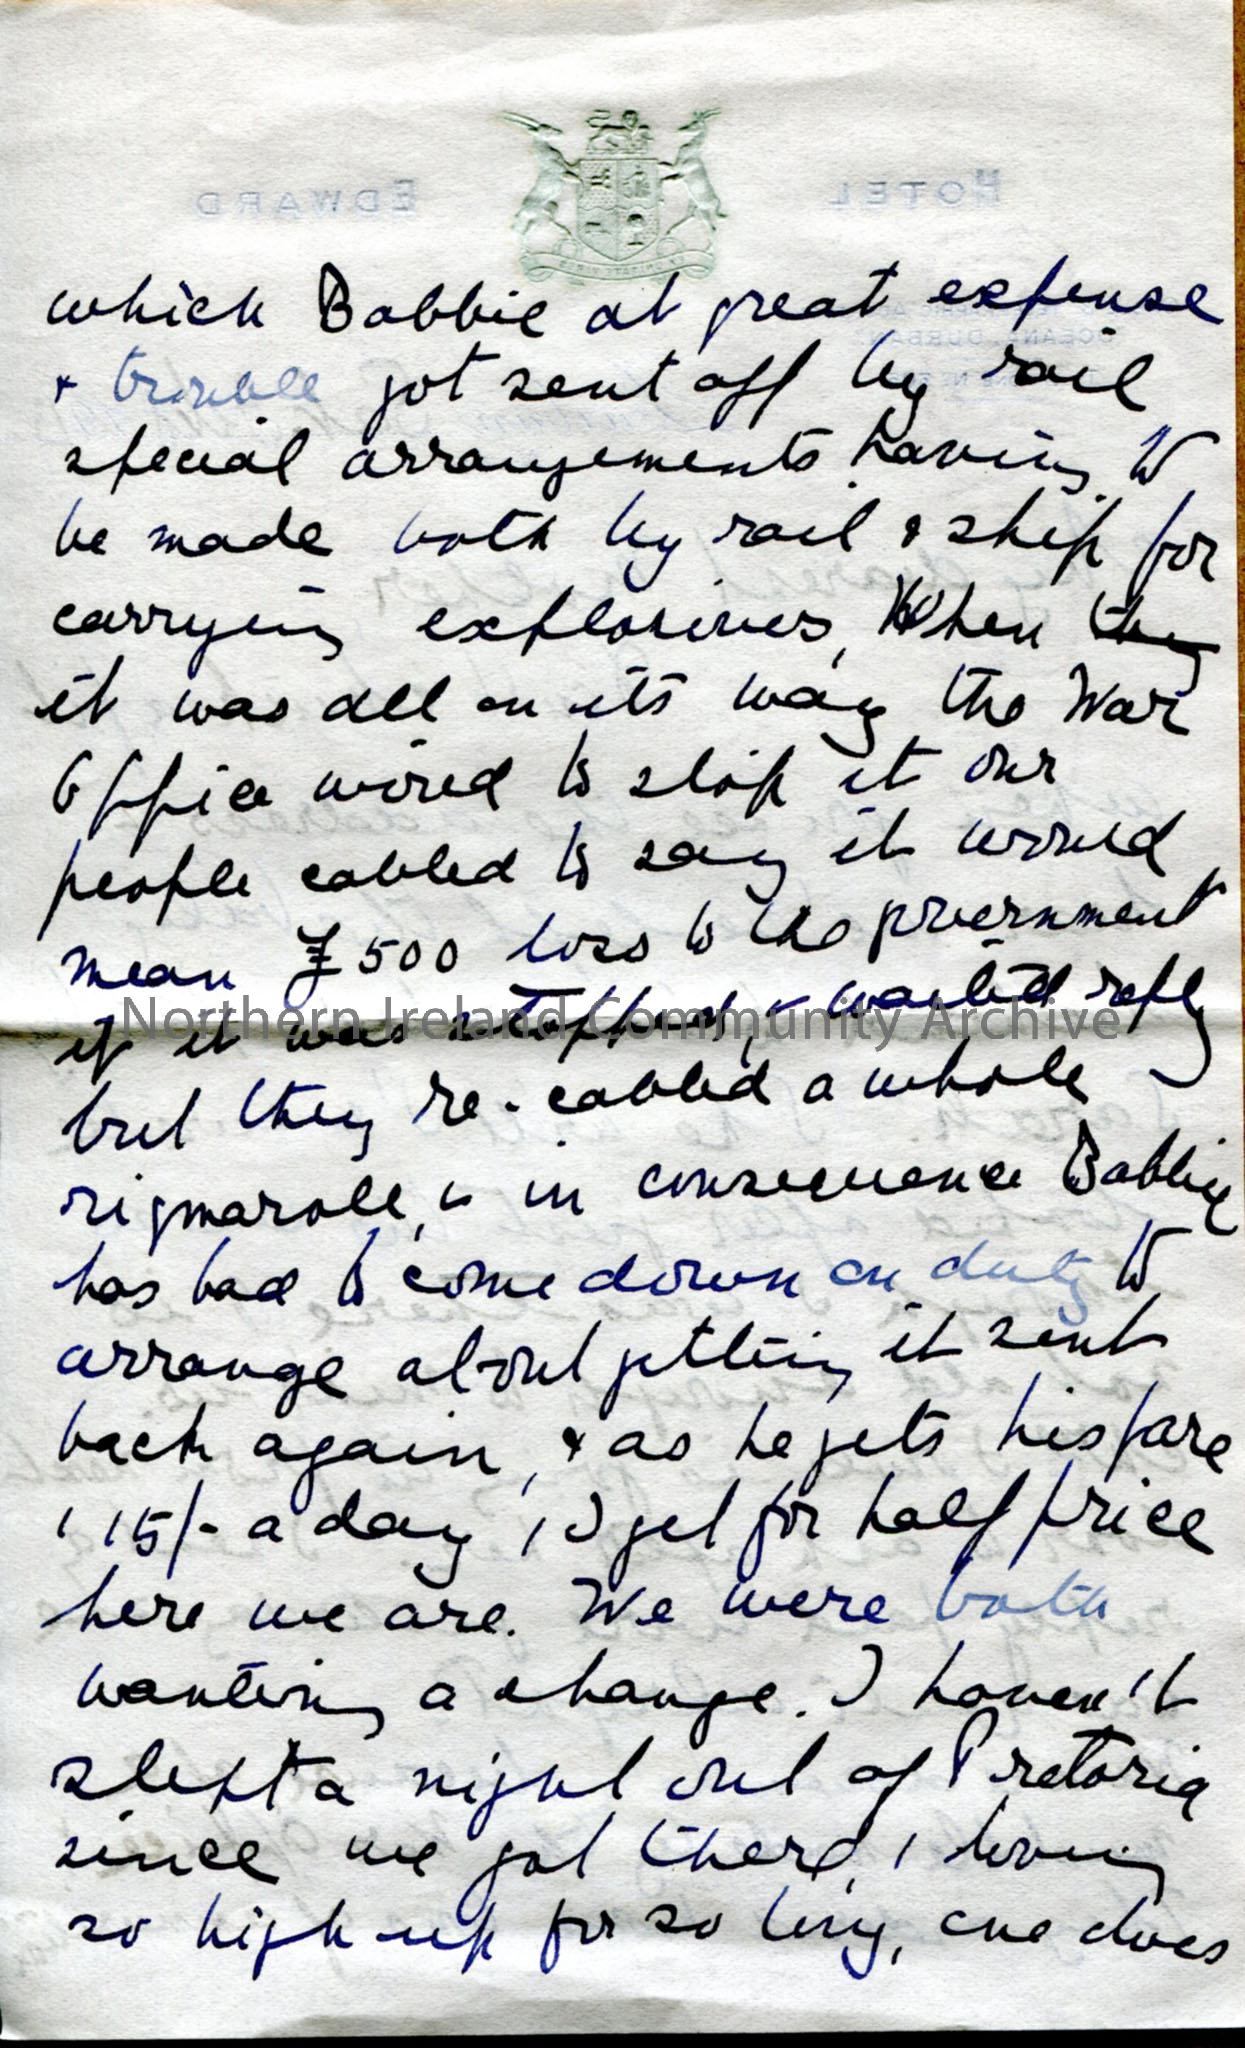 which Babbie at great expense
& trouble got sent off by rail
special arrangements having to
be made both by rail & ship for
carrying explosives, When they
it was all on its way the War
Office wired to stop it our
people cabled to say it would
mean £500 loss to the government
if it was stopped, & waited reply
but they re-cabled a whole
rigmarole, & in consequence Babbie
has had to come down on duty to
arrange about getting it sent
back again, & as he gets his fare
& 15/- a day, & I get for half price
here we are. We were both
wanting a change. I haven't
slept a night out of Pretoria
since we got there, & living
so high up for so long, one does
HOTEL EDWARD
Northern Ireland Community Archive